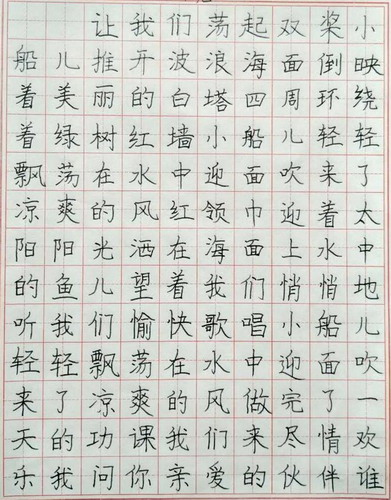 让我们荡起双桨小
船儿推开波浪海面倒映
着美丽的白塔四周环绕
着绿树红墙小船儿轻轻
飘荡在水中迎面吹来了
凉爽的风红领巾迎着太
阳阳光洒在海面上水中
的鱼儿望着我们悄悄地
听我们愉快歌唱小船儿
轻轻飘荡在水中迎面吹
来了凉爽的风做完了一
天的功课我们来尽情欢
乐我问你亲爱的伙伴谁